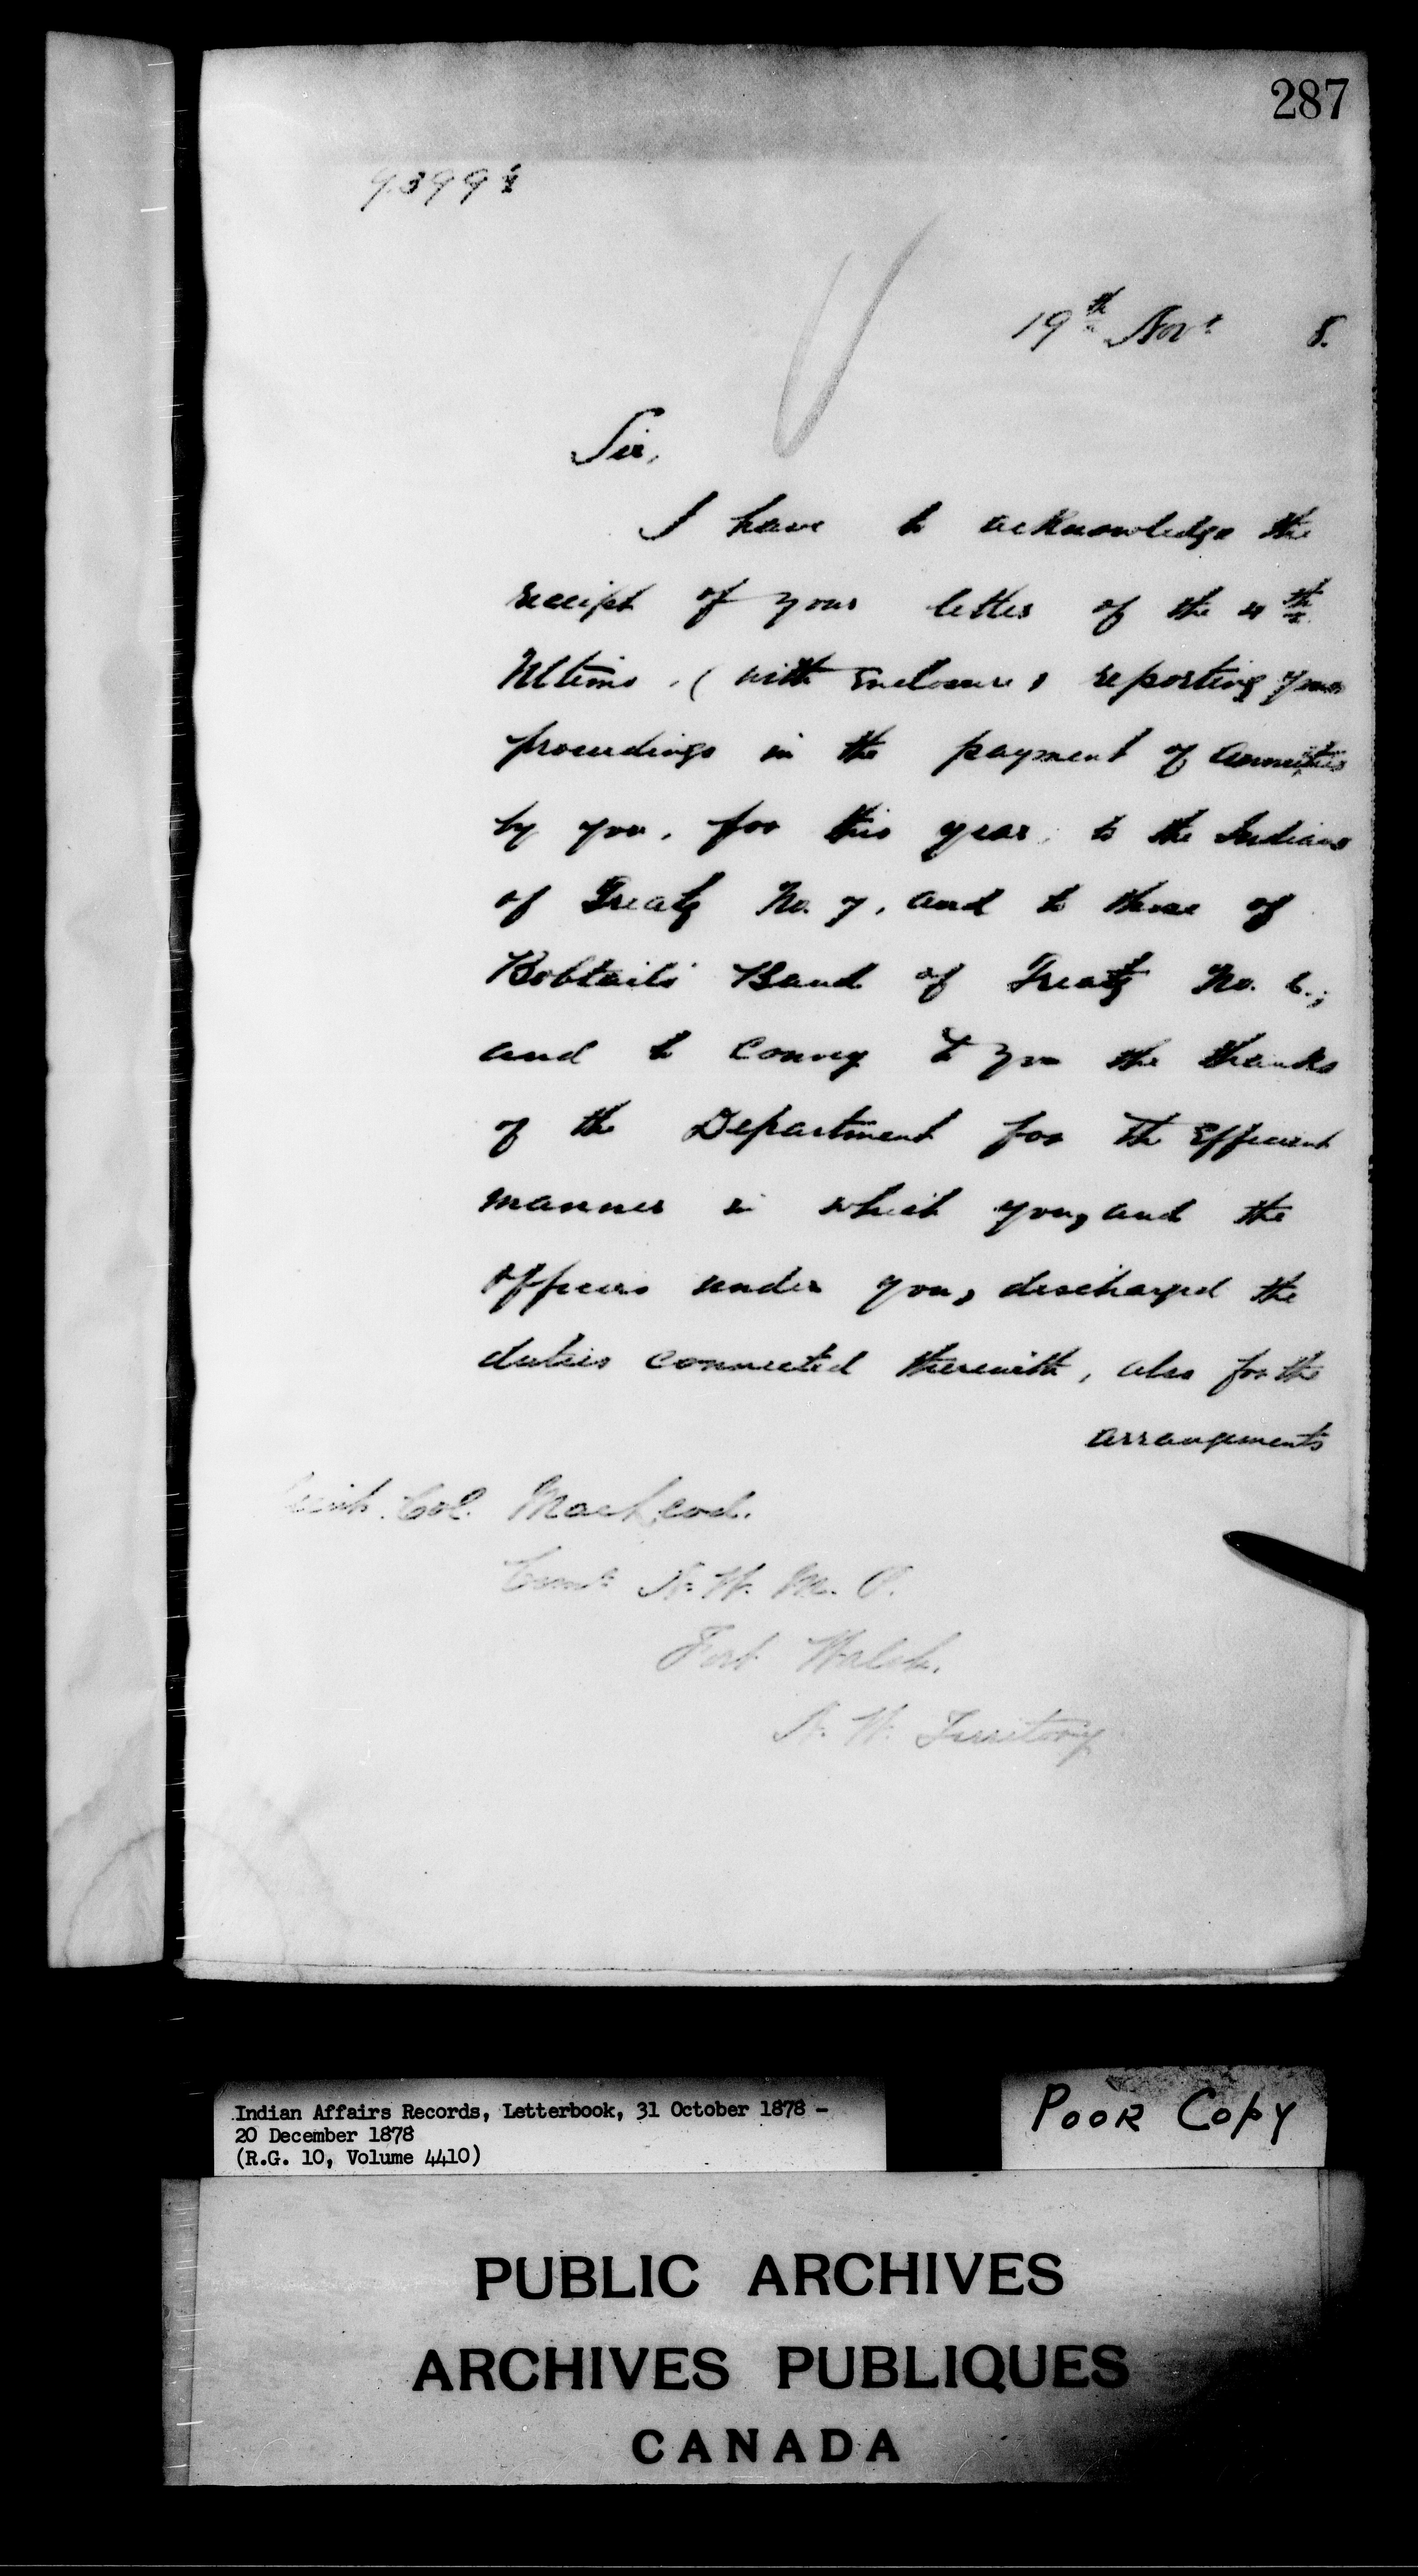 287
19th Novr 8.
Sir,
I have to acknowledge the
receipt of your letter of the 4th
Ultimo, (with Enclosure, reporting your
proceedings in the payment of annuities
by you, for this year, to the Indians
of Treaty No. 7, and to those of
Bobtail's Band of Treaty No. 6.;
and to convey to you the thanks
of the Department for the Efficient
manner in which you, and the
officers under you, discharged the
duties connected therewith, also for the
arrangements
Col. MacLeod.
Comr N. W. M. P.
Fort Walsh.
N. W. Territory
Indian Affairs Records, Letterbook, 31 October 1878 -
20 December 1878
(R.G. 10, Volume 4410)
POOR COPY
PUBLIC ARCHIVES
ARCHIVES PUBLIQUES
CANADA